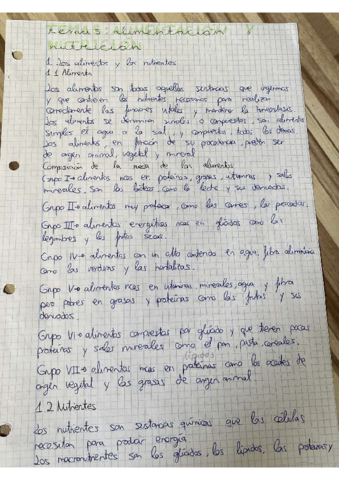 Tema 3: alimentación y
nutrición
1. Los alimentos y los nutrientes
1.1 Alimento
Los alimentos son todas aquellas sustancias que ingerimos
y que contienen los nutrientes necesarios para realizar
correctamente las funciones vitales y mantener la homeostasis
Los alimentos se denominan simples o compuestos, son alimentos
simples el agua o la sal, y compuestos, todos los demás
Los alimentos, en función de su procedencia, pueden ser
de origen animal, vegetal y mineral
Composición de la rueda de los alimentos
Grupo I→ alimentos ricos en proteínas, grasas, vitaminas y sales
minerales. Son los lácteos, como la leche y sus derivados.
Grupo II→ alimentos muy proteicos, como las carnes, los pescados.
Grupo III→ alimentos energéticos ricos en glúcidos como las
legumbres y los frutos secos.
Grupo IV→ alimentos con un alto contenido en agua, fibra alimentaria
como las verduras y las hortalizas.
Grupo V→ alimentos ricos en vitaminas, minerales, agua y fibra
pero pobres en grasas y proteínas como las frutas y sus
derivados.
Grupo VI→ alimentos compuestos por glúcido y que tienen pocas
proteínas y sales minerales como el pan, pasta, cereales.
lípidos
Grupo VII→ alimentos ricos en proteínas como los aceites de
origen vegetal y las grasas de origen animal.
1.2 Nutrientes
Los nutrientes son sustancias químicas que las células
necesitan para producir energía
Los macronutrientes son los glúcidos, los lípidos, las proteínas y